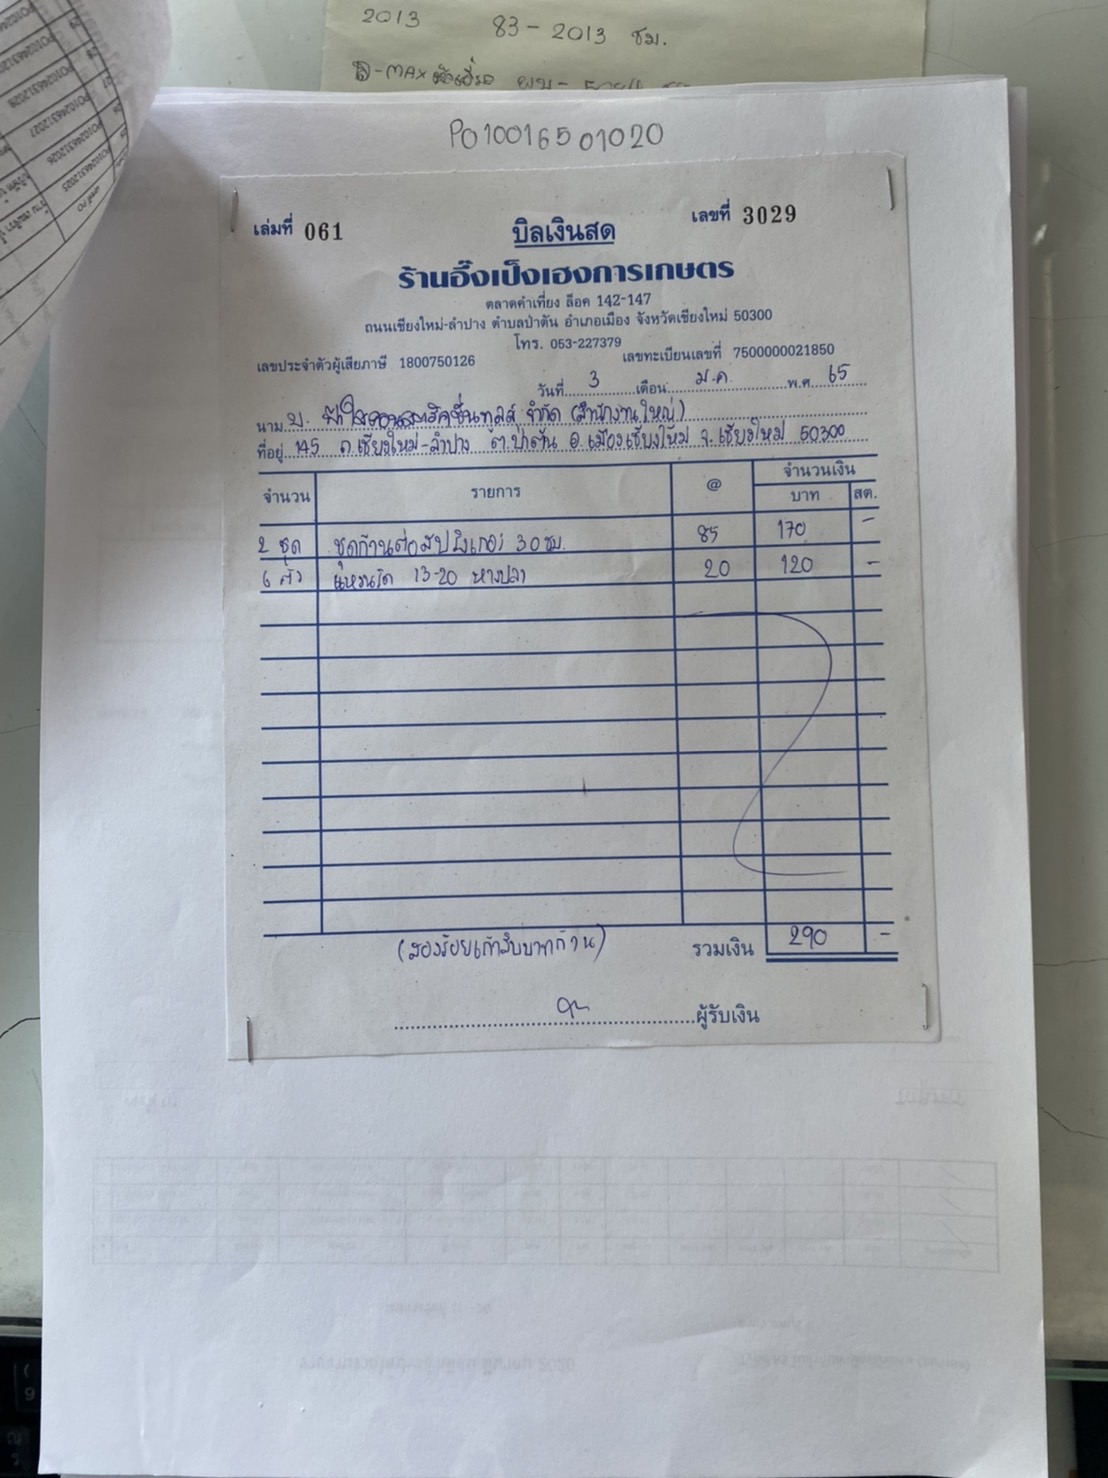 2013 83-2013 ชม.
D-MAX
PO10016501020
เล่มที่ 061
เลขที่ 3029
บิลเงินสด
ร้านอึ๊งเป็งเฮงการเกษตร
ตลาดคำเที่ยง ล็อค 142-147
ถนนเชียงใหม่-ลำปาง ตำบลป่าตัน อำเภอเมือง จังหวัดเชียงใหม่ 50300
โทร. 053-227379
เลขประจำตัวผู้เสียภาษี 1800750126 เลขทะเบียนเลขที่ 7500000021850
วันที่ 3 เดือน ม.ค. พ.ศ. 65
นาม บ. จำกัด (สำนักงานใหญ่)
ที่อยู่ 145 ถ.เชียงใหม่-ลำปาง ต.ป่าตัน อ.เมืองเชียงใหม่ จ.เชียงใหม่ 50300
จำนวน รายการ @ จำนวนเงิน
บาท สต.
2 ชุด ชุดก้านต่อสปริงเกอร์ 30 ซม. 85 170 -
6 ตัว แหวนรัด 13-20 หางปลา 20 120 -
(สองร้อยเก้าสิบบาทถ้วน) รวมเงิน 290 -
ผู้รับเงิน